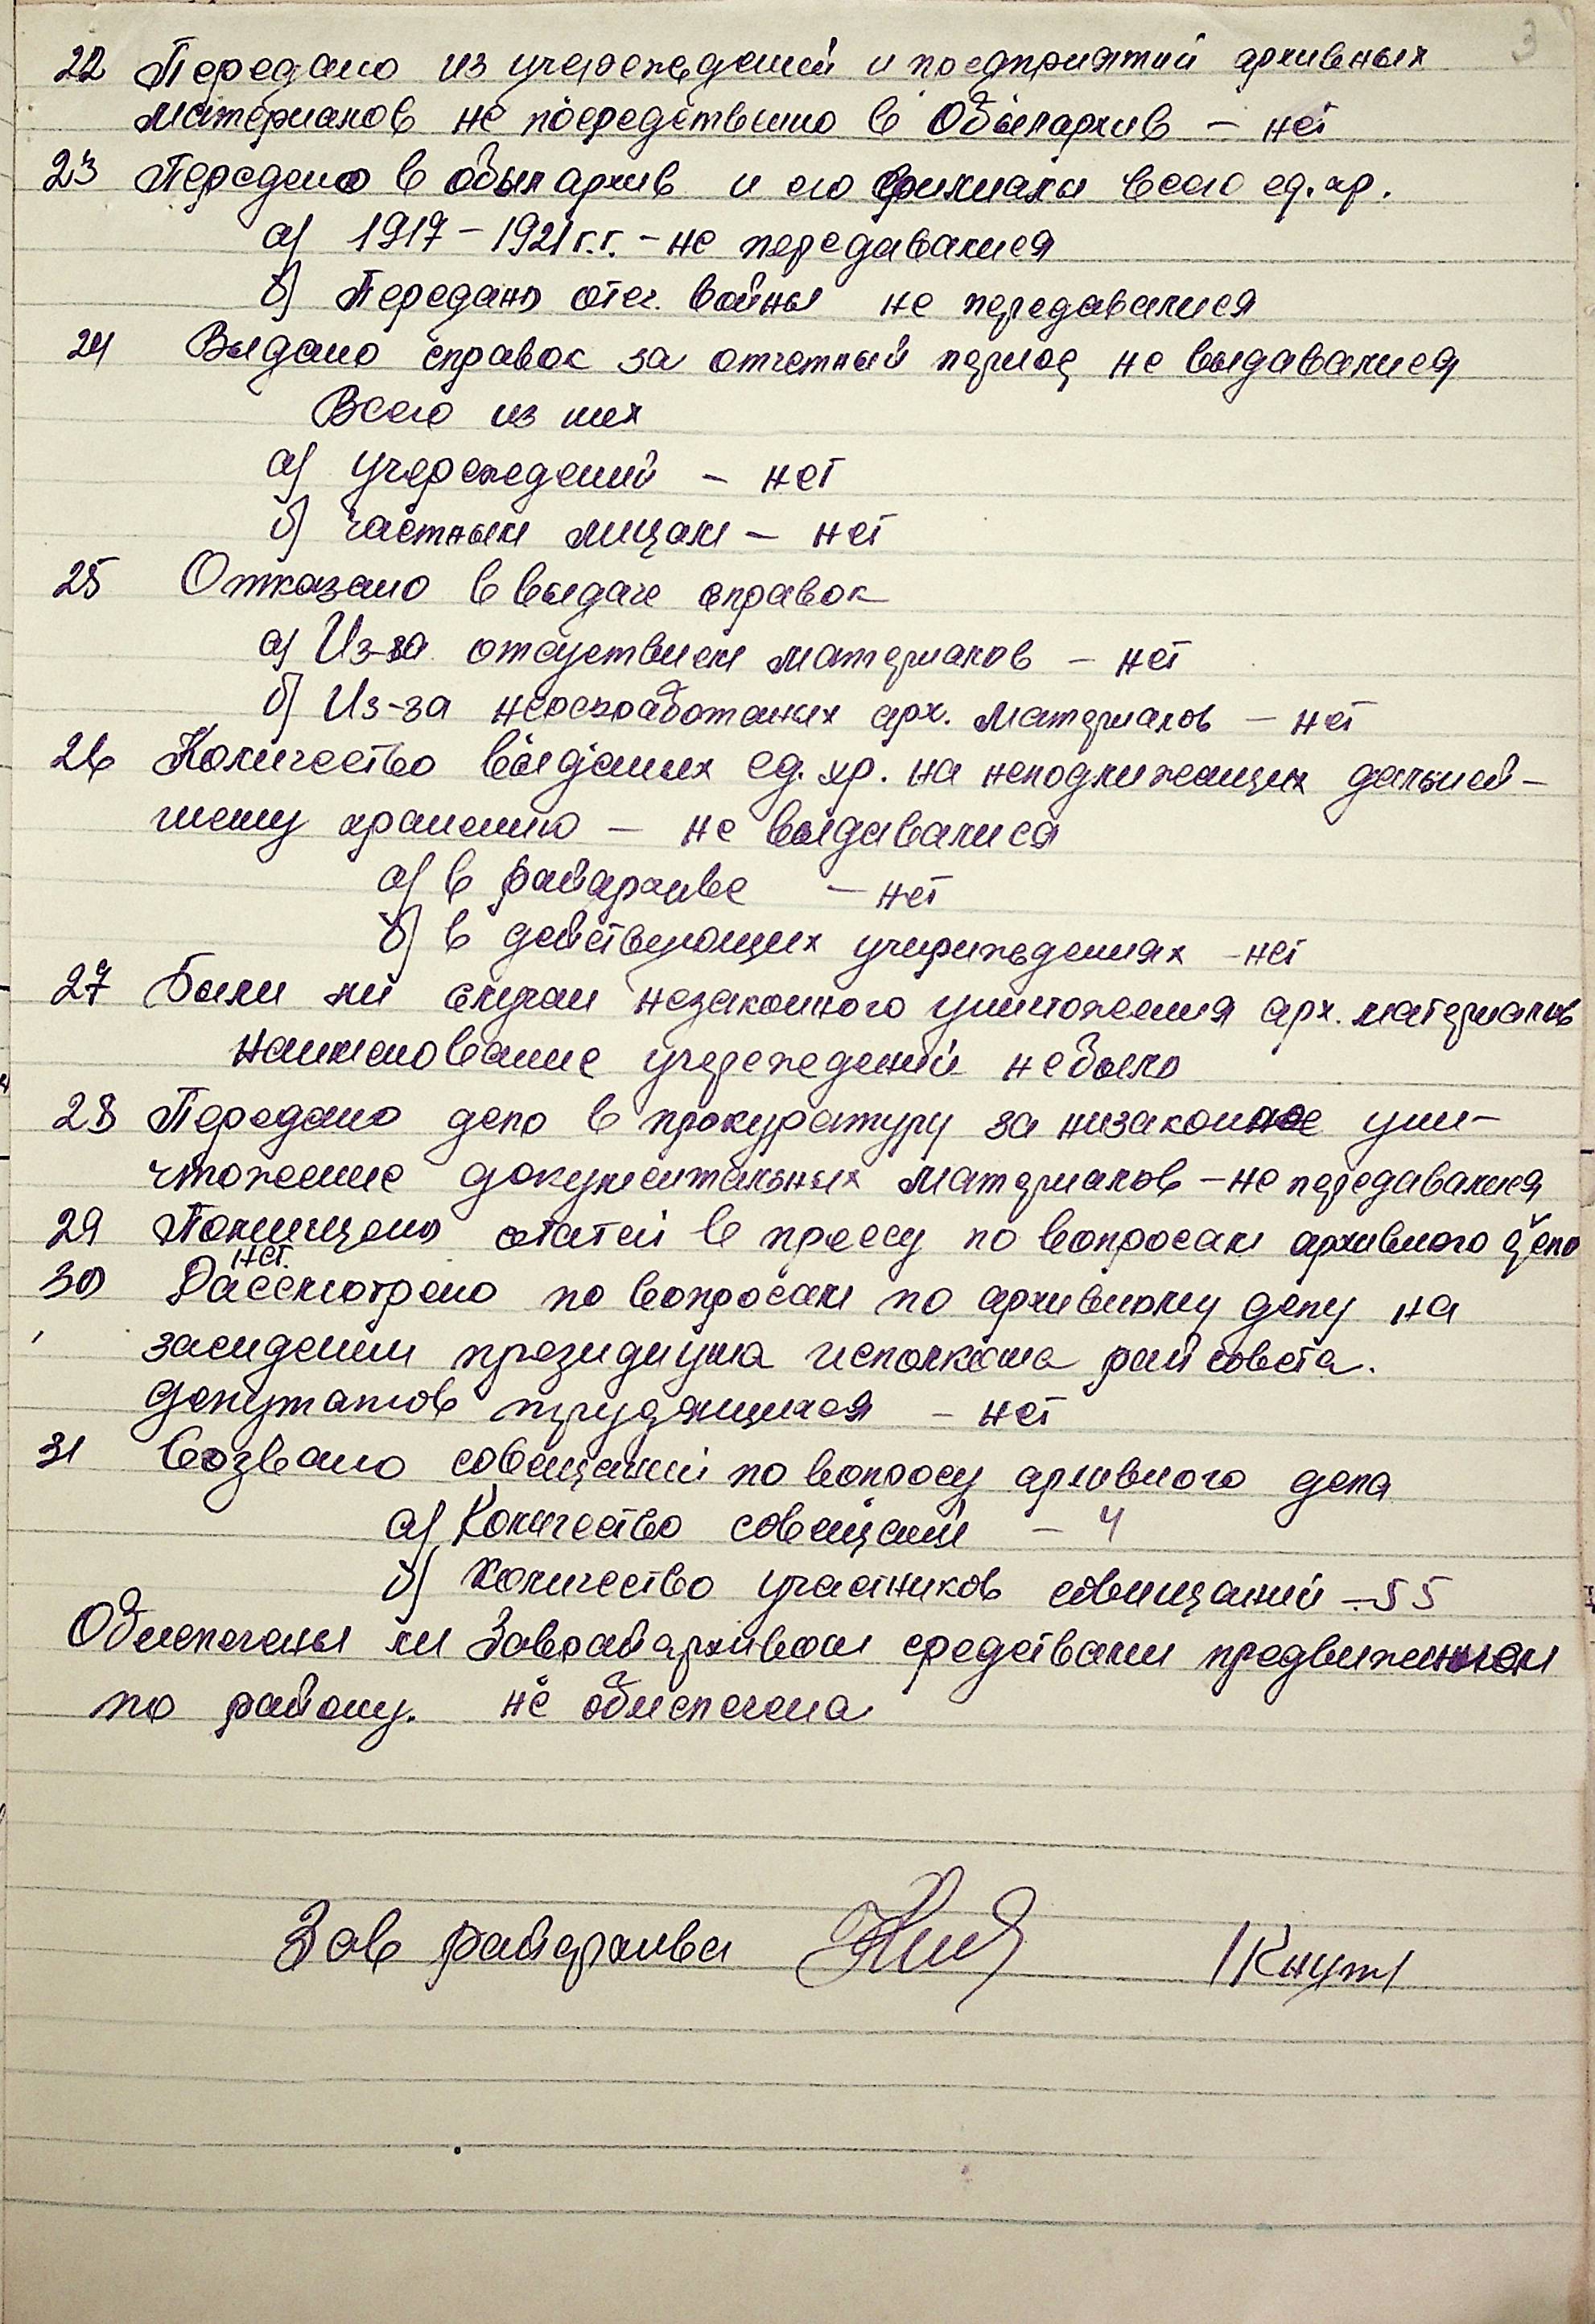 3
22 Передано из учереждений и предприятий архивных
материалов не посредствино в Облархив – нет
23 Передано в облархив и его филиалы всего ед. хр.
а) 1917 – 1921 г.г. – не передавалися
б) Передано отеч. войны не передавалися
24 Выдано справок за отчетный период не выдавалися
Всего из них
а) учереждений – нет
б) частным лицам – нет
25 Отказано в выдаче справок
а) Из-за отсуствием материалов – нет
б) Из-за арх. материалов – нет
26 Количество выданых ед. хр. на неподлижащих дальней-
шему хранению – не выдавалися
а) в райархиве – нет
б) в действующих учириждениях – нет
27 Были ли случаи незаконного уничтожения арх. материалов
наименование учереждений небыло
28 Передано дело в прокуратуру за низаконное уни-
чтожение документальных материалов – не передавалися
29 Помищено статей в прессу по вопросам архивного дело
нет.
30 Рассмотрено по вопросам по архивному делу на
засидении президиума исполкома райсовета.
депутатов трудящихся – нет
31 Созвано совещаний по вопросу архивного дела
а) Количество совещаний – 4
б) Количество участников совищаний – 55
Обиспечены ли Заврайархивом средствами предвижением
по району. не обиспечена
Зав райархива /Кнут/